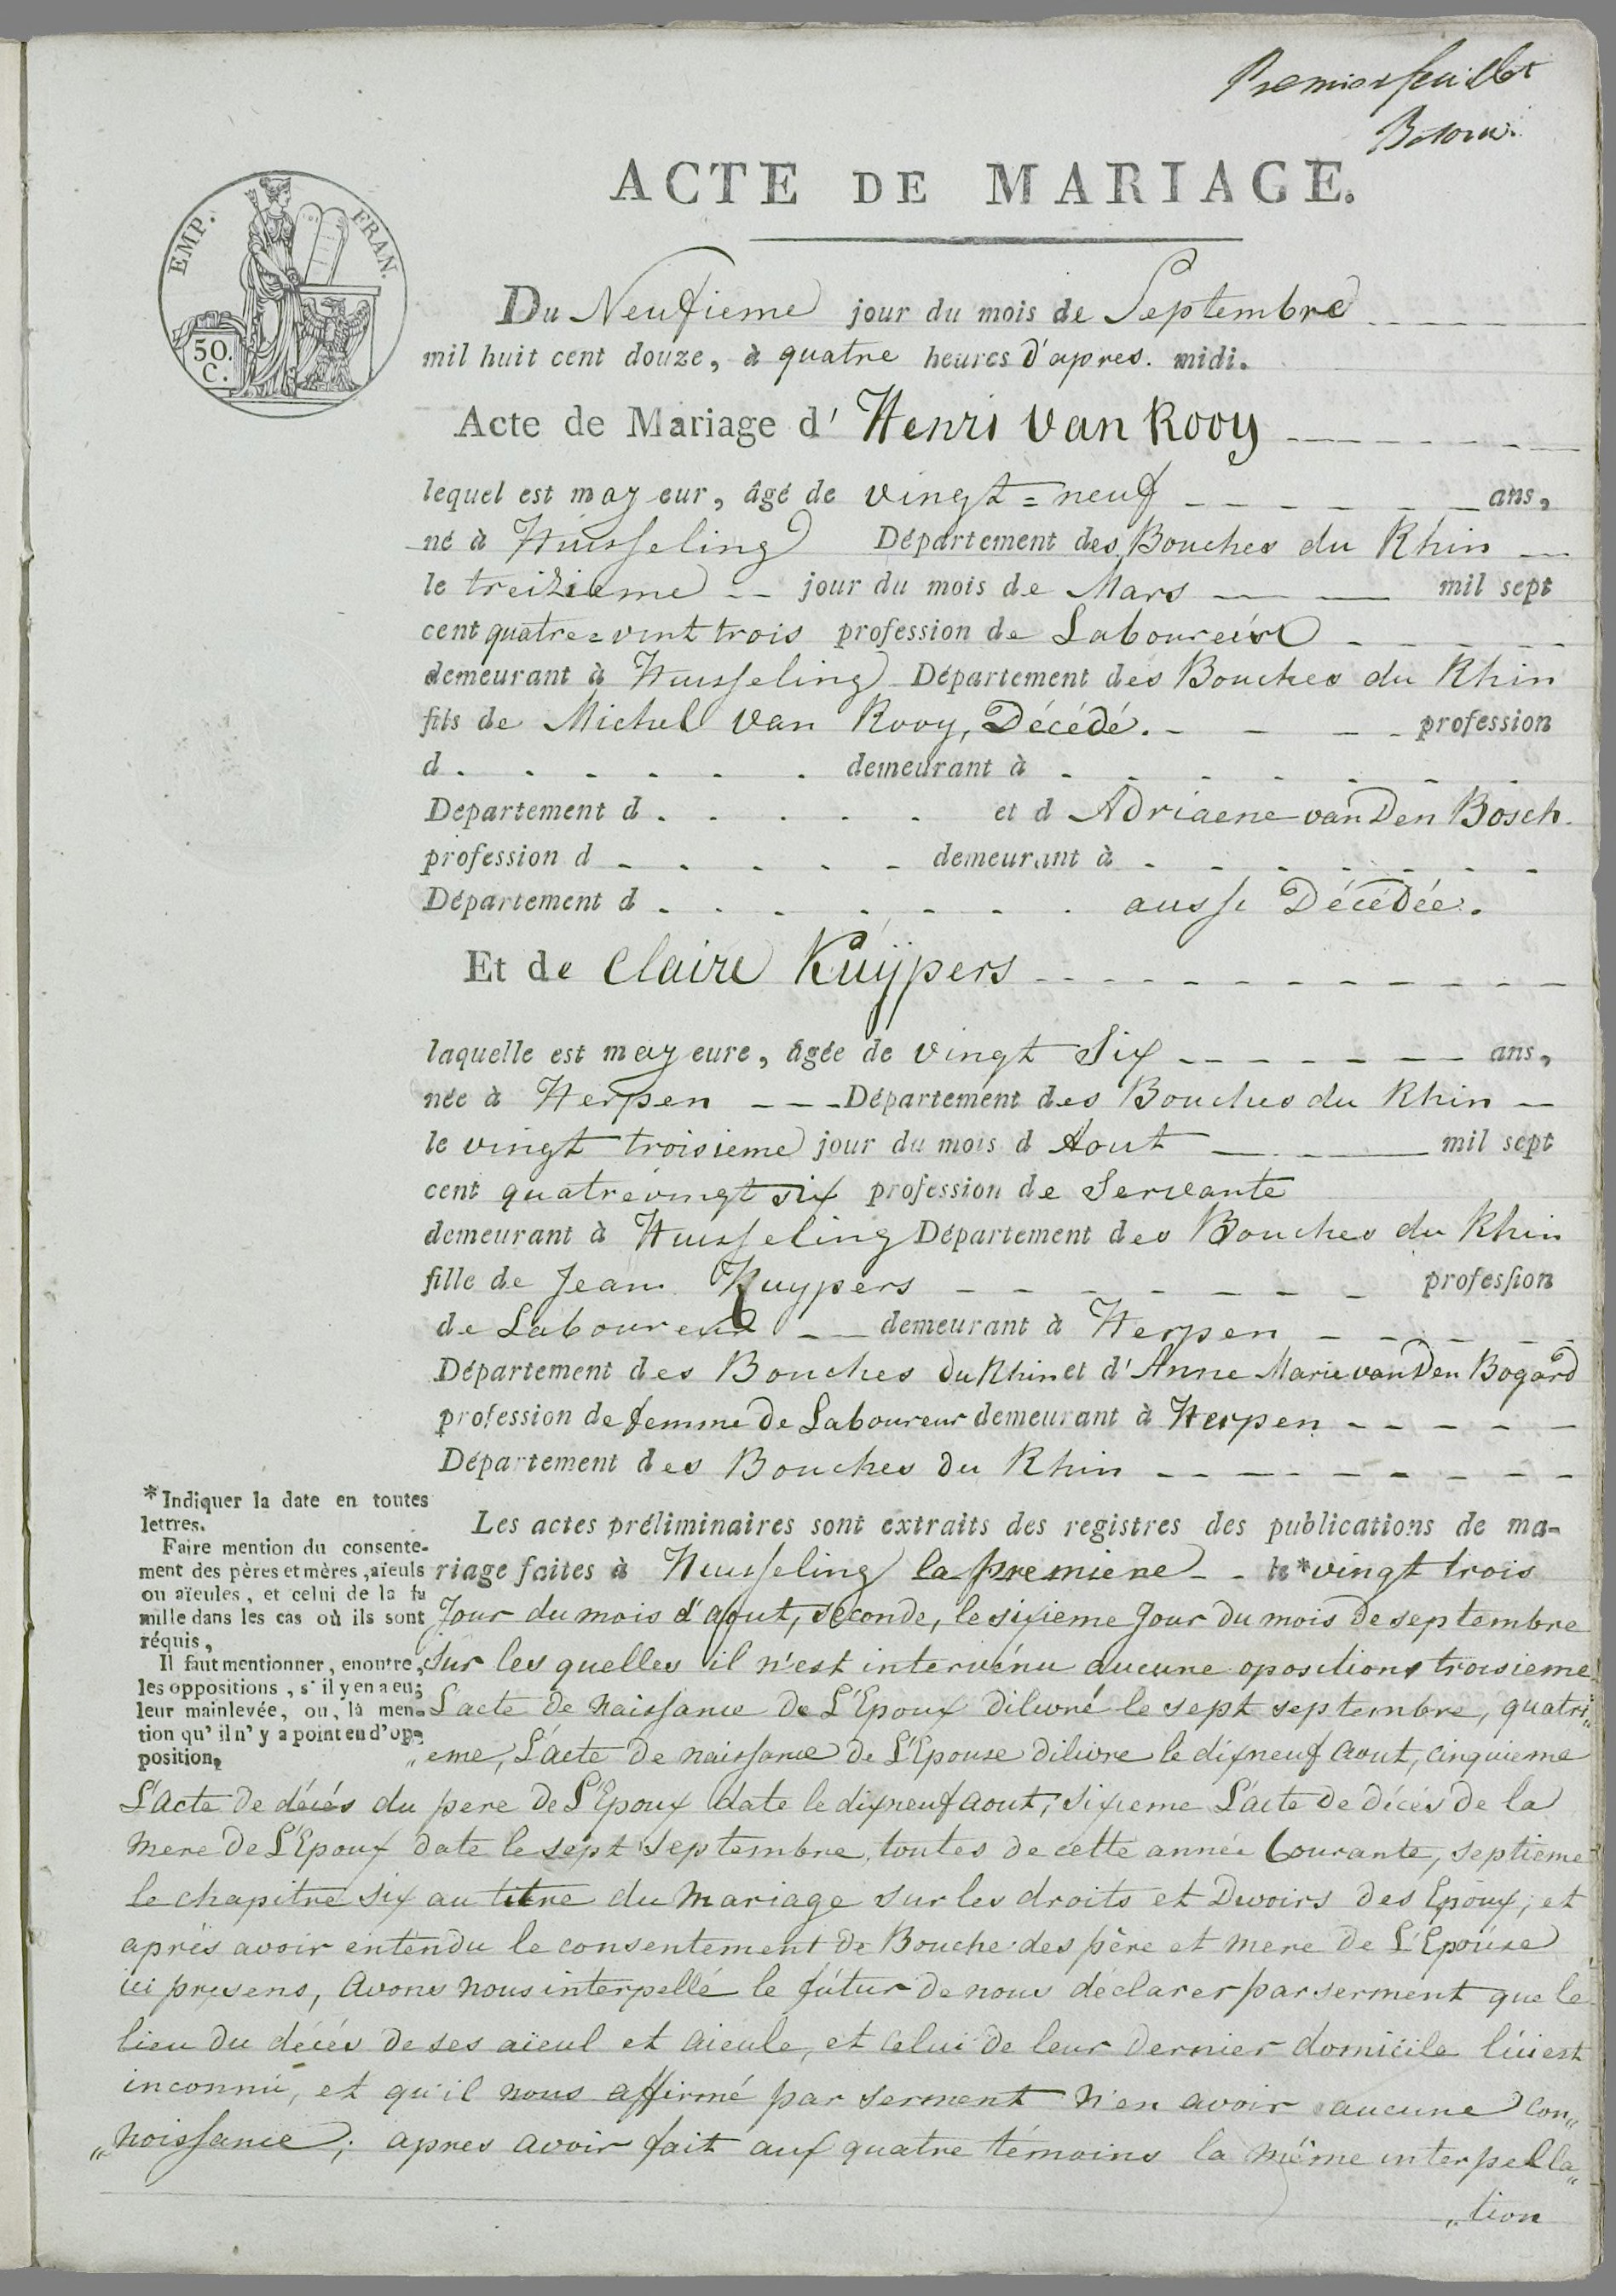 Premier feuillet
ACTE DE MARIAGE.
EMP. FRAN.
50.
C.
Du Neufieme jour du mois de Septembre
mil huit cent douze, à quatre heures d'apres. midi.
Acte de Mariage d' Henri van Rooy
lequel est mayeur, âgé de vingt=neuf ans,
né à Huisseling Département des Bouches du Rhin
le treizieme jour du mois de Mars mil sept
cent quatre=vint trois profession de Laboureur
demeurant à Huisseling Département des Bouches du Rhin
fils de Michel van Rooy, Décédé. profession
d demeurant à
Departement d et d Adriaene van Den Bosch.
profession d demeurant à
Département d aussi Décédée.
Et de Claire Kuÿpers
laquelle est mayeure, âgée de vingt Six ans,
née à Herpen Département des Bouches du Rhin
le vingt troisieme jour du mois d Aout mil sept
cent quatrevingt six profession de Servante
demeurant à Huisseling Département des Bouches du Rhin
fille de Jean Kuypers profession
de Laboureur demeurant à Herpen
Département des Bouches du Rhin et d' Anne Marie van Den Bogard
profession de femme de Laboureur demeurant à Herpen
Département des Bouches du Rhin
*Indiquer la date en toutes
lettres.
Faire mention du consente-
ment des pères et mères, aïeuls
ou aïeules, et celui de la fa
mille dans les cas où ils sont
réquis,
Il faut mentionner, enoutre,
les oppositions, s'il y en a eu;
leur mainlevée, ou, la men-
tion qu' il n' y a point eu d'op-
position,
Les actes préliminaires sont extraits des registres des publications de ma-
riage faites à Huisseling la premiere le *vingt trois
Jour du mois d'aout, seconde, le sixieme Jour du mois de septembre
Sur les quelles il n'est intervénu aucune opositions troisieme
L'acte de Naissance de L'Epoux dilivré le sept septembre, quatri„
„eme, L'acte de naissance de L'Epouse dilivre le dixneuf aout, cinquieme
L'Acte de décés du pere de L'Epoux date le dixneuf aout, sixieme L'acte de décés de la
mere de L'Epoux date le sept septembre, toutes de cette année Courante, septieme
le chapitre six au titre du Mariage sur les droits et Devoirs des Epoux, et
aprés avoir entendu le consentement de Bouche des père et mere de L'Epouse
ici presens, Avons nous interpellé le futur de nous déclarer par serment que le
lieu du décés de ses aïeul et aieule, et celui de leur dernier domicile lui est
inconnu, et qu'il nous affirmé par serment n'en avoir aucune con„
„noissance; apres avoir fait aux quatre témoins la même interpella„
„tion